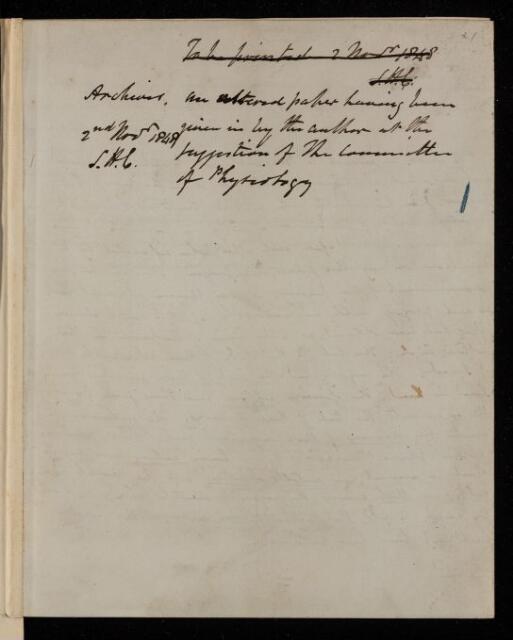 21
To be printed 2 Novr 1848
S.H.C.
Archives. an altered paper having been
2nd Novr 1848 given in by the author at the
S.H.C. suggestion of the Committee
of Physiology